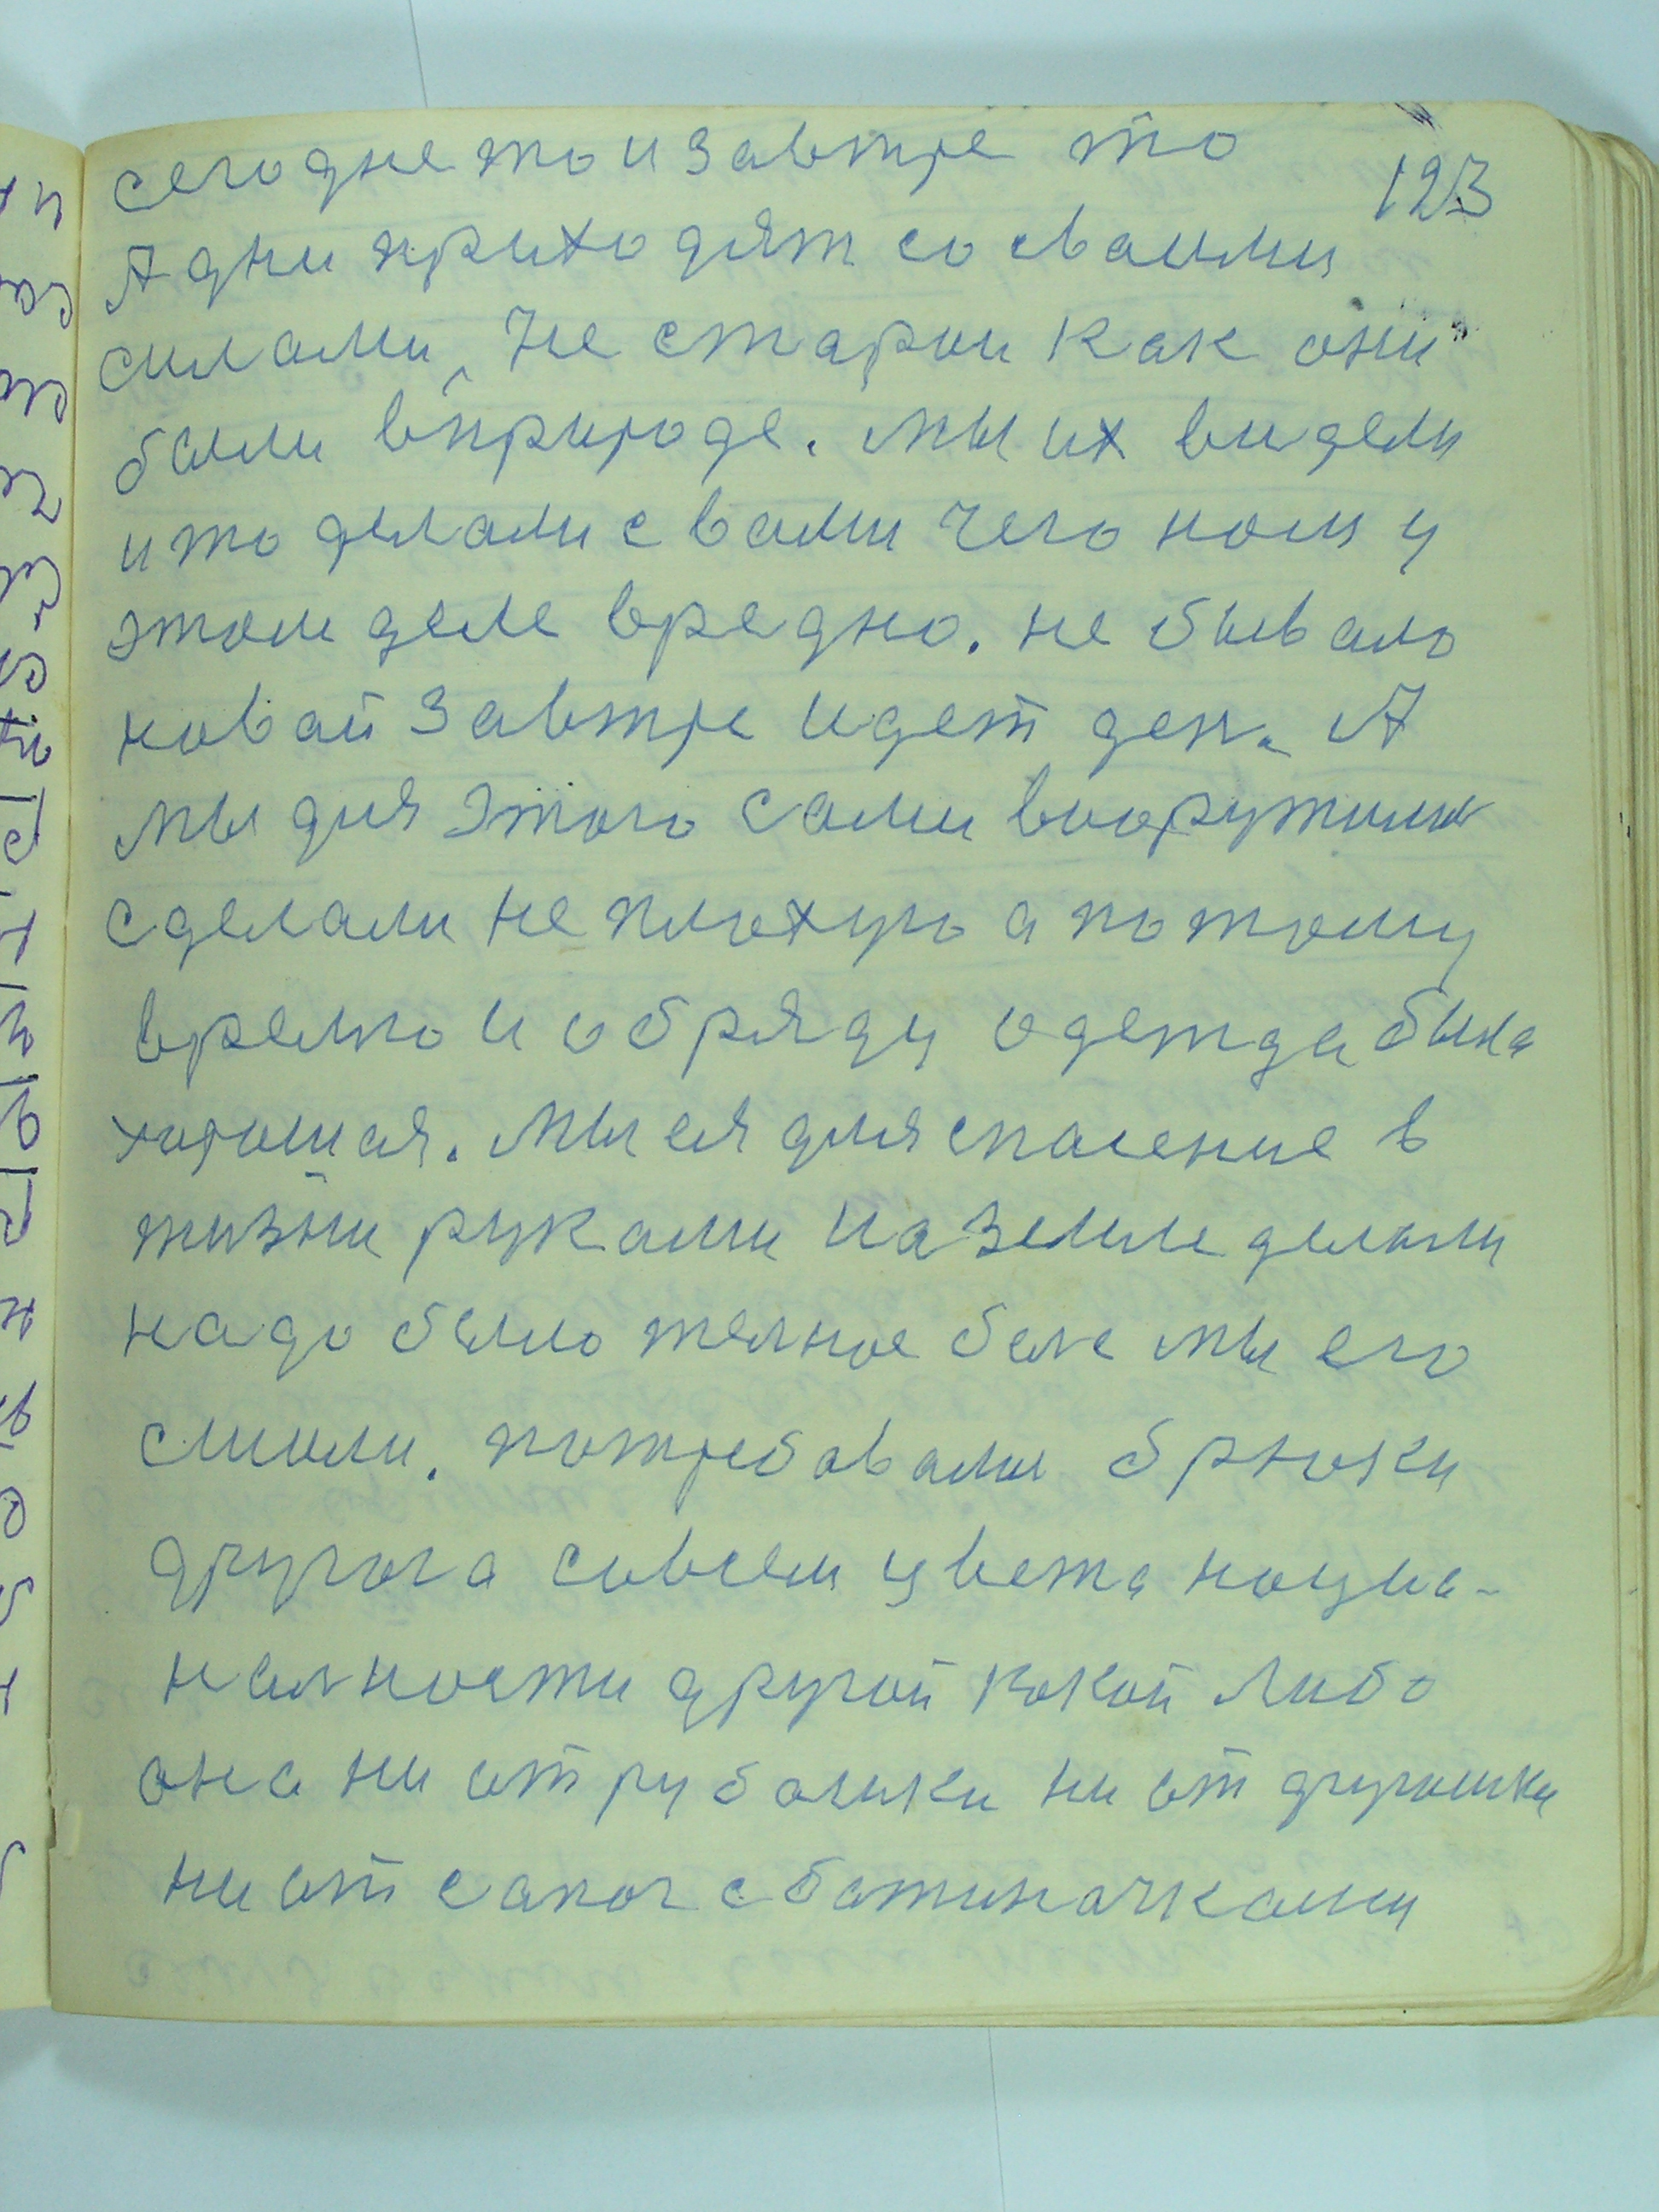 123
сегодне то и завтре то
А дни приходят со сваими
силами, не старои как они
были в природе. мы их видели
и то делали с вами чего ном у
этом деле вредно. не бывало
новай завтре идет ден. А
мы для этого сами вооружили
сделали не плохую а потому
времю и обряду одежда была
хорошая. Мы ея для спасение в
жизни руками на земле делали
надо было темное беле мы его
сшили. потребавали брюки
другога совсем цвета нацыа-
налности другой какой либо
она ни от рубашки ни от другошки
ни от сапог с батиначками